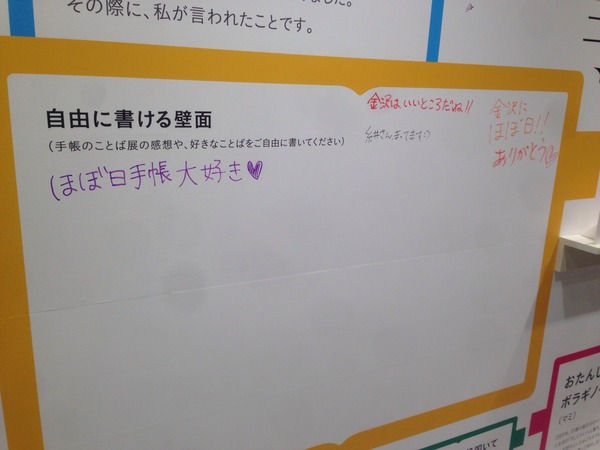 その際に、私が言われたことです。
自由に書ける壁面
（手帳のことば展の感想や、好きなことばをご自由に書いてください）
ほぼ日手帳大好き♥
金沢はいいところだね!!
糸井さんまってます
金沢に
ほぼ日!!
ありがとう
おたんじ
ボラギノー
（マミ）